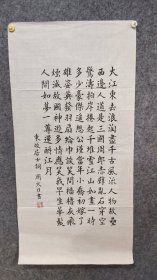 大江東去浪淘盡千古風流人物故壘
西邊人道是三國周郎赤壁亂石穿空
驚濤拍岸捲起千堆雪江山如畫一時
多少豪傑遙想公瑾當年小喬初嫁了
雄姿英發羽扇綸巾談笑間檣櫓灰飛
煙滅故國神遊多情應笑我早生華髮
人間如夢一尊還酹江月
東坡居士詞 周 書